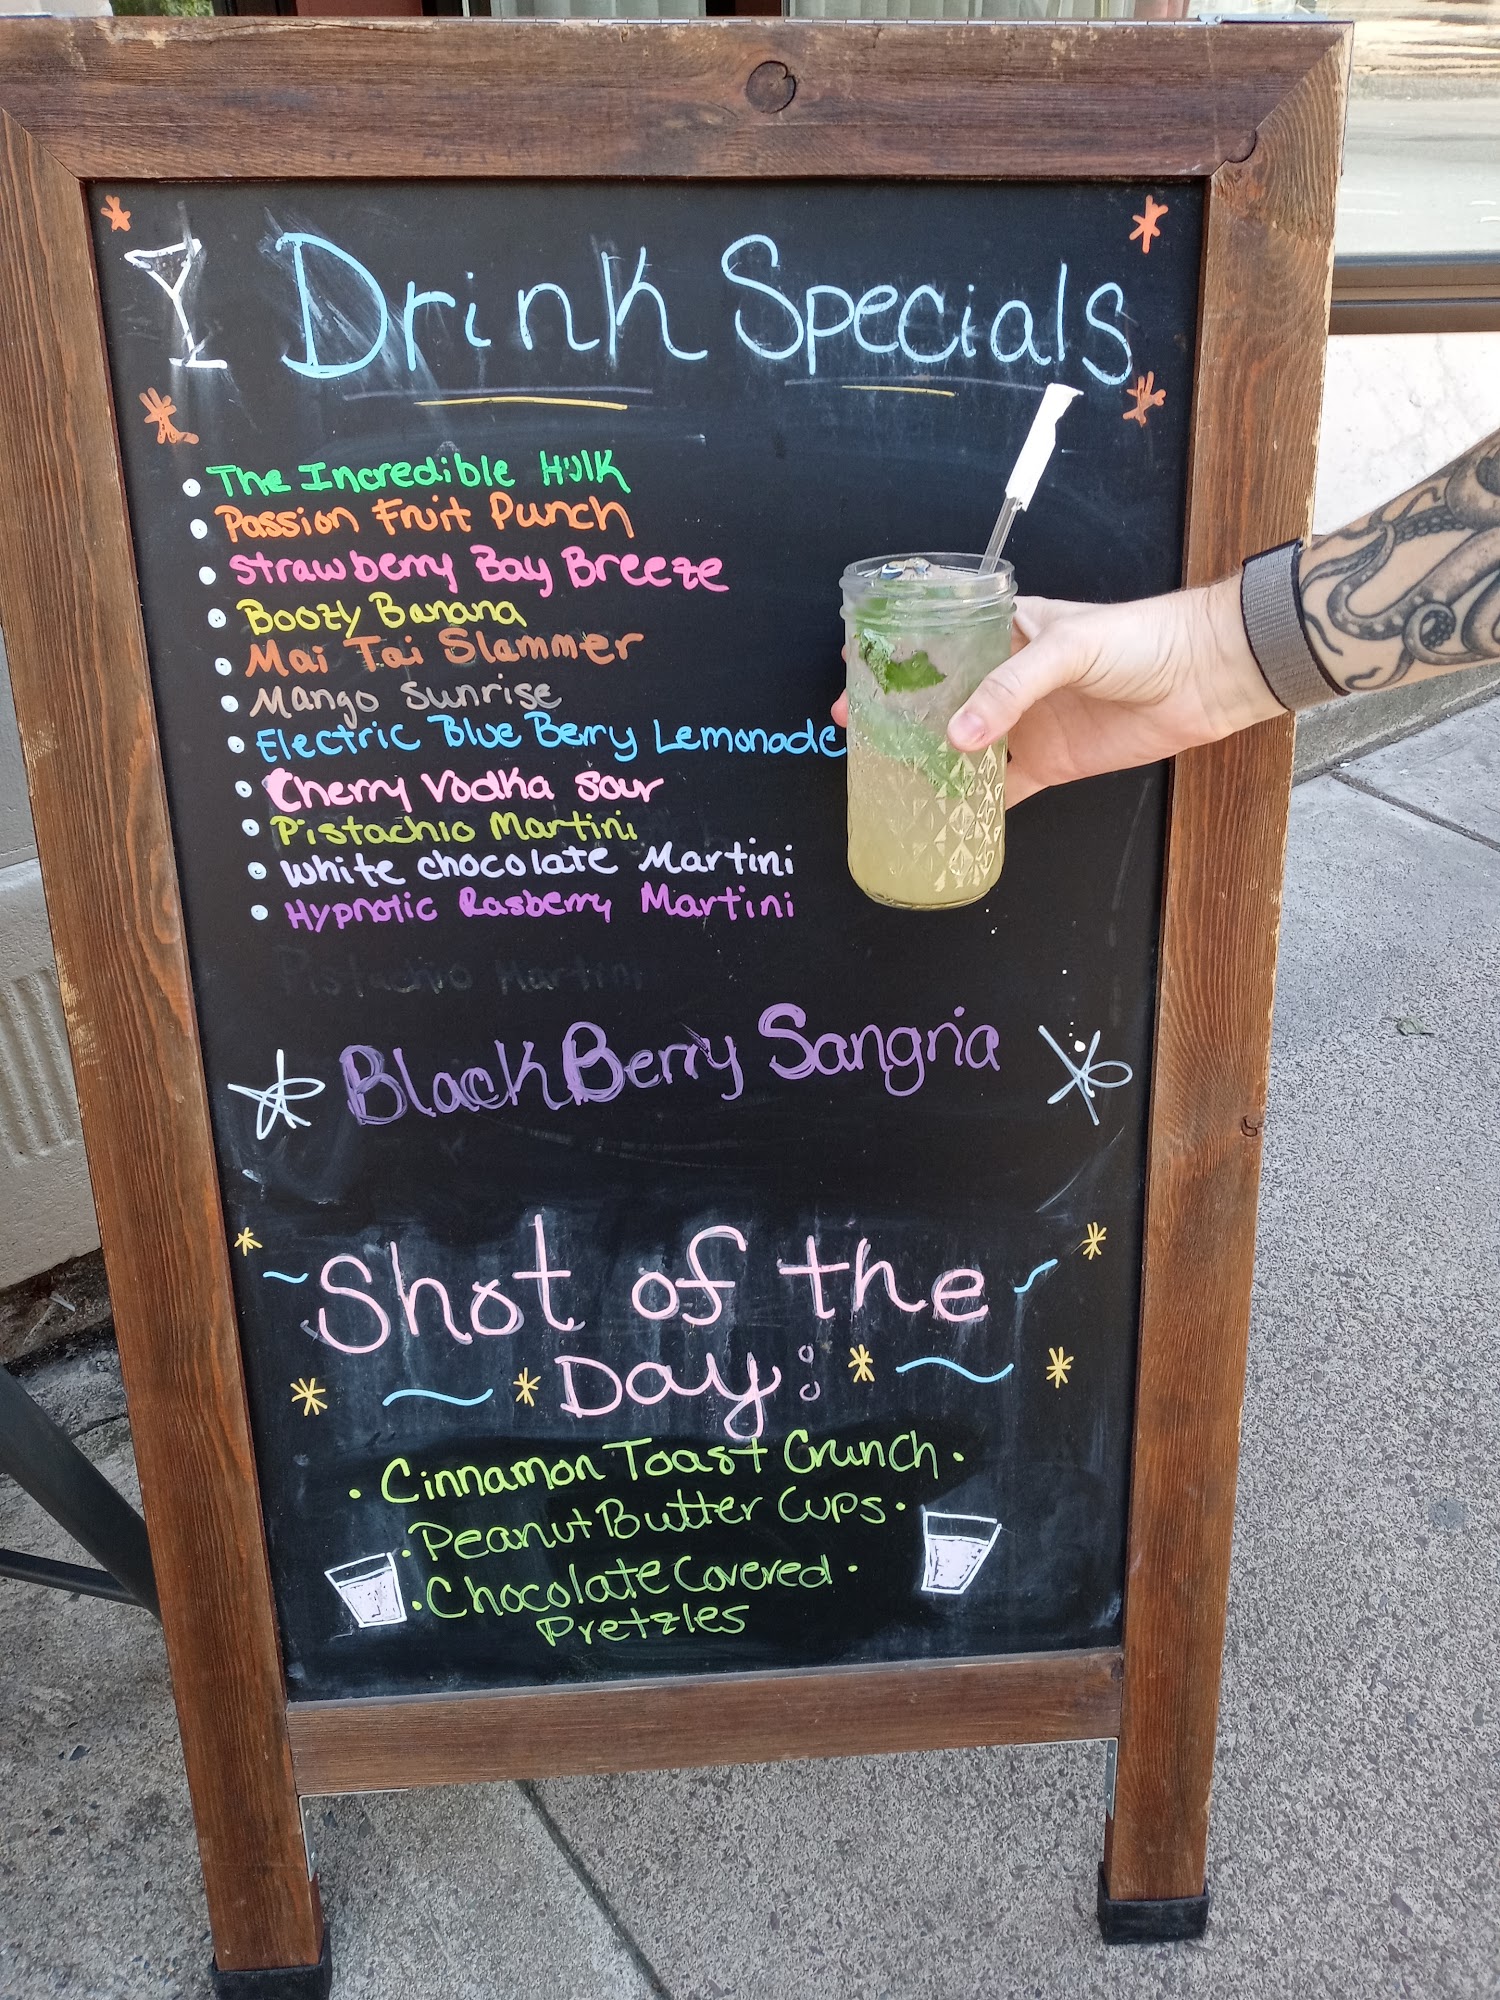 Drink Specials
The Incredible Hulk
Passion Fruit Punch
Strawberry Bay Breeze
Boozy Banana
Mai Tai Slammer
Mango Sunrise
Electric Blue Berry Lemonade
Cherry Vodka Sour
Pistachio Martini
White chocolate Martini
Hypnotic Rasberry Martini
Pistachio Martini
BlackBerry Sangria
Shot of the
Day:
Cinnamon Toast Crunch
Peanut Butter Cups
Chocolate Covered
Pretzles